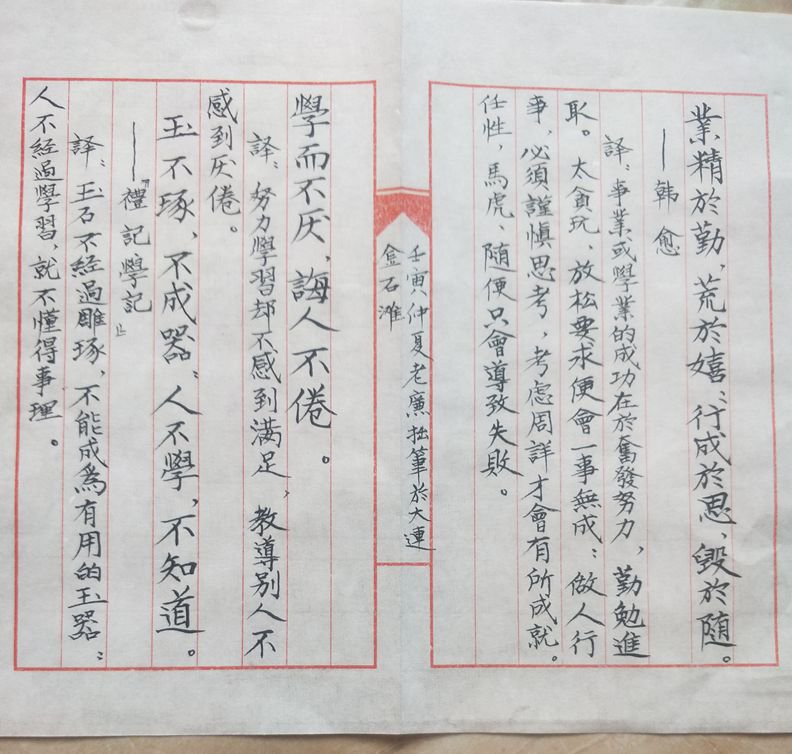 業精於勤，荒於嬉；行成於思、毁於随。
——韩愈
譯：事業或學業的成功在於奮發努力，勤勉進
取。太貪玩、放松要求便會一事無成；做人行
事、必須謹慎思考，考虑周詳才會有所成就。
任性，馬虎、随便只會導致失敗。
壬寅仲夏老廉拙筆於大連
金石滩
學而不厌、誨人不倦。
譯：努力學習却不感到满足，教導别人不
感到厌倦。
玉不琢，不成器；人不學，不知道。
——『禮記學記』
譯：玉石不經過雕琢，不能成爲有用的玉器；
人不經過學習，就不懂得事理。